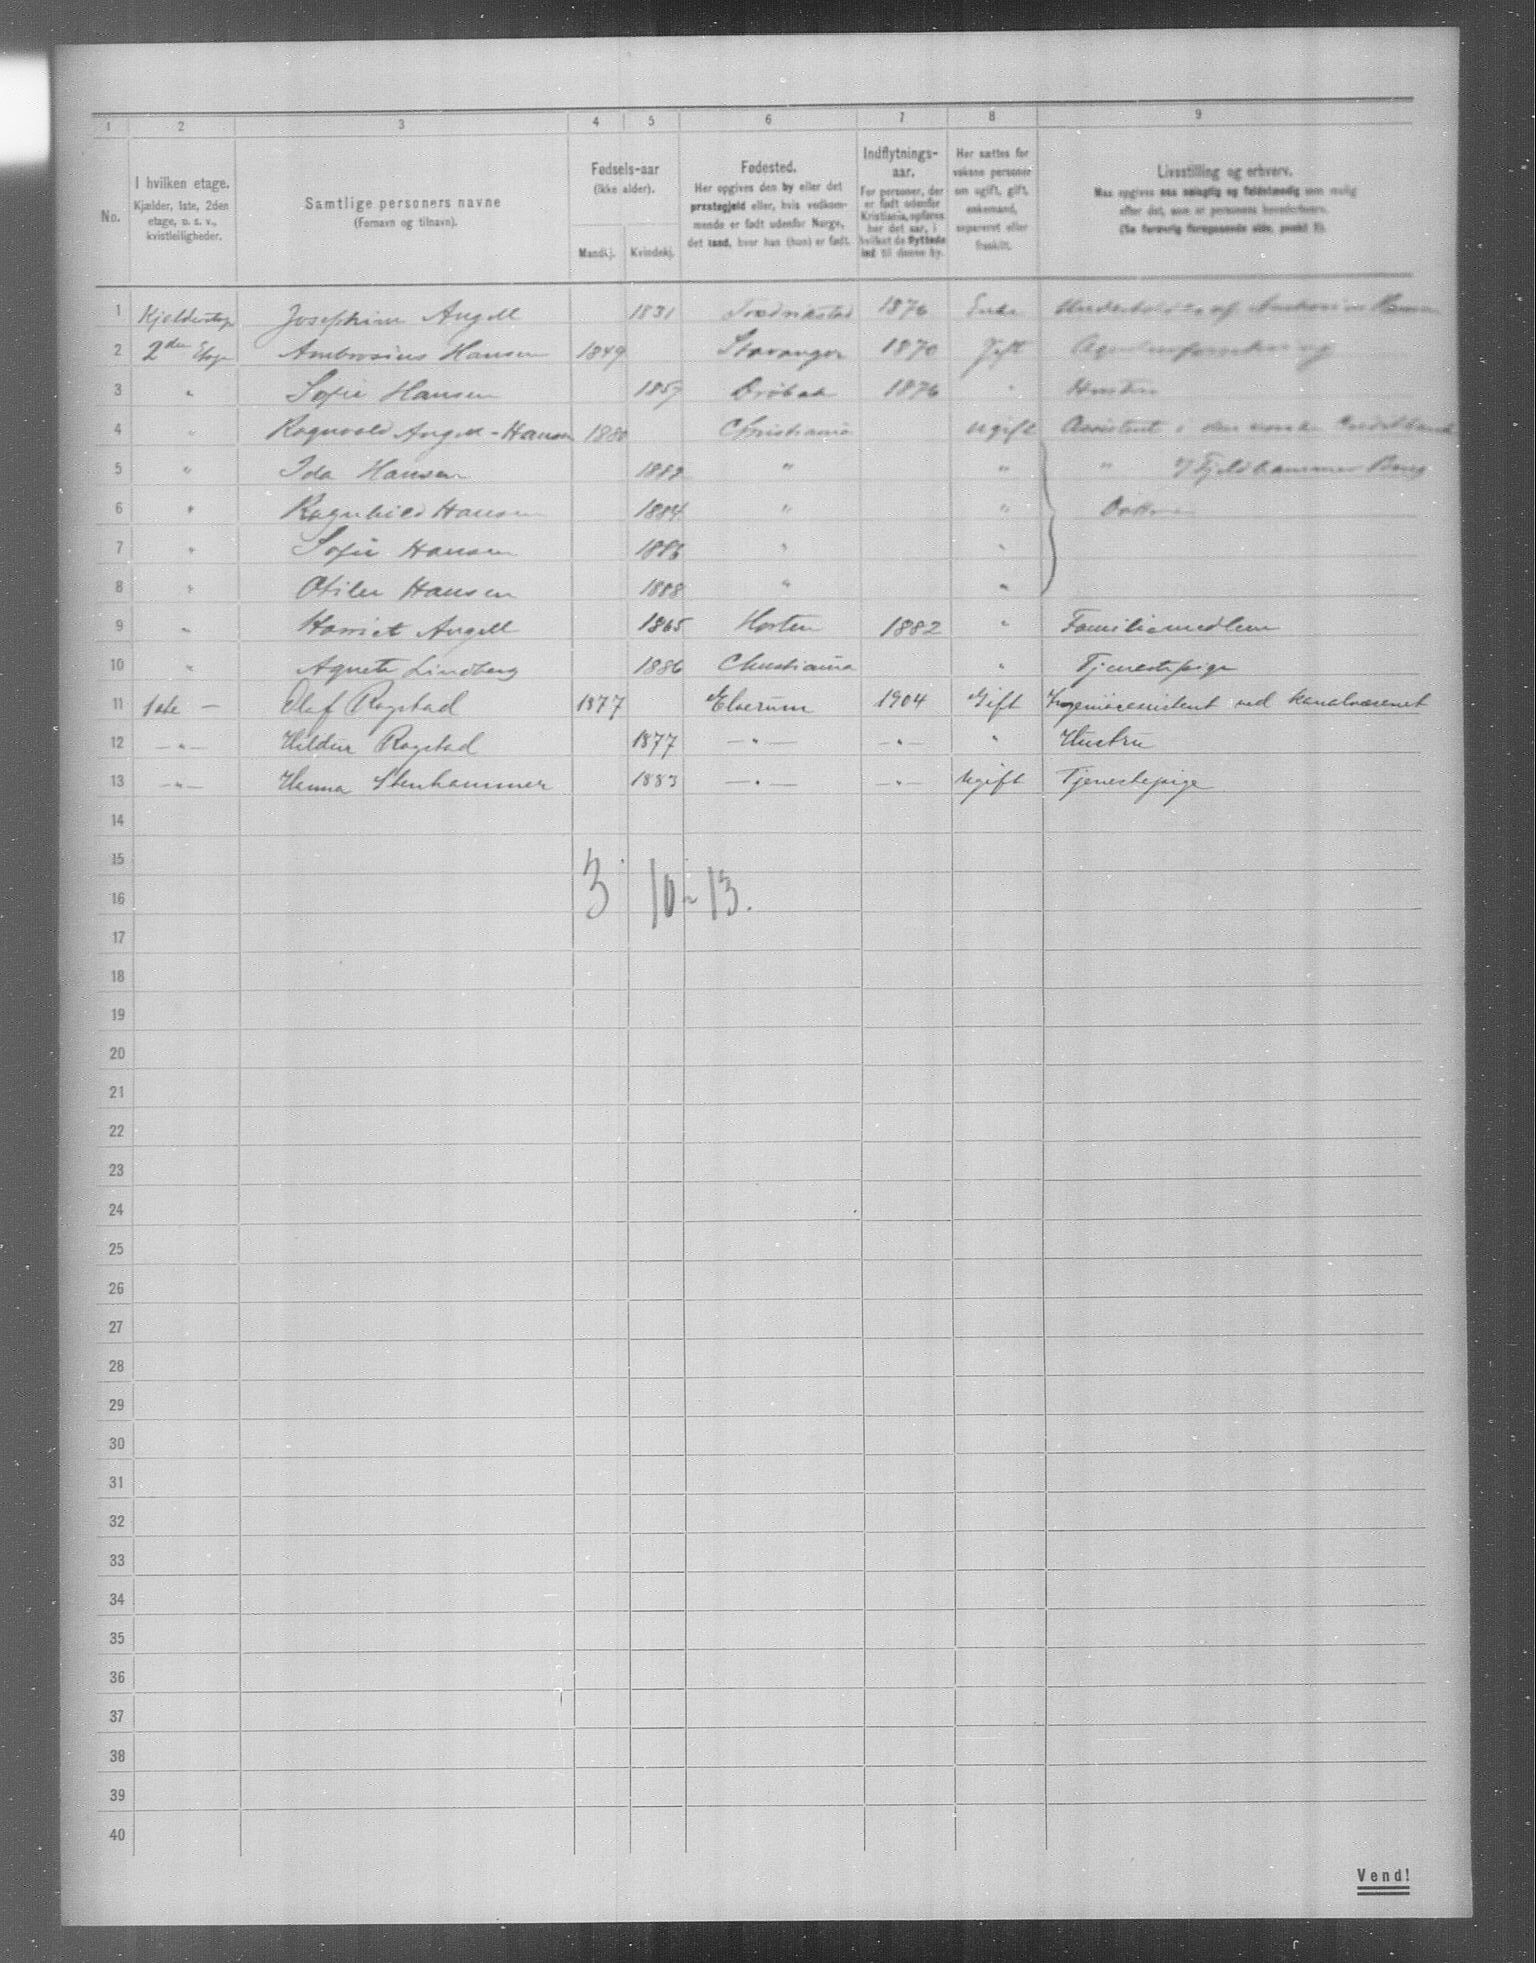 1 2 3 4 5 6 7 8 9
No.
I hvilken etage.
Kjælder, 1ste, 2den
etage, o. s. v.,
kvistleiligheder.
Samtlige personers navne
(Fornavn og tilnavn).
Fødsels-aar
(ikke alder).
Mandkj. Kvindekj.
Fødested.
Her opgives den by eller det
præstegjeld eller, hvis vedkom-
mende er født udenfor Norge,
det land, hvor han (hun) er født.
Indflytnings-
aar.
For personer, der
er født udenfor
Kristiania, opføres
her det aar, i
hvilket de flyttede
ind til denne by.
Her sættes for
voksne personer
om ugift, gift,
enkemand,
separeret eller
fraskilt.
Livsstilling og erhverv.
Maa opgives saa nøiagtig og fuldstændig som mulig
efter det, som er personens hovederhverv.
(Se forøvrig foregaaende side, punkt 2).
1 Kjelderetage Josephine Angell 1831 Fredrikstad 1876 Enke
2 2den Etage Ambrosius Hansen 1849 Stavanger 1870 Gift
3 " Sofie Hansen 1857 Drøbak 1876 " Hustru
4 " Ragnvald Angell-Hansen 1880 Christiania Ugift Assistent i den norske Creditbank
5 " Ida Hansen 1882 " " "
6 " Ragnhild Hansen 1884 " " Døttre
7 " Sofie Hansen 1886 " "
8 " Otilie Hansen 1888 " "
9 " Harriet Angell 1865 Horten 1882 " Familiemedlem
10 " Agnete Lindberg 1886 Christiania " Tjenestepige
11 1ste — Olaf Rogstad 1877 Elverum 1904 Gift Ingeniørassistent ved Kanalvæsenet
12 —"— Hildur Rogstad 1877 —"— —"— " Hustru
13 —"— Hanna Stenhammer 1883 —"— —"— Ugift Tjenestepige
14
15
3 10 - 13.
16
17
18
19
20
21
22
23
24
25
26
27
28
29
30
31
32
33
34
35
36
37
38
39
40
Vend!